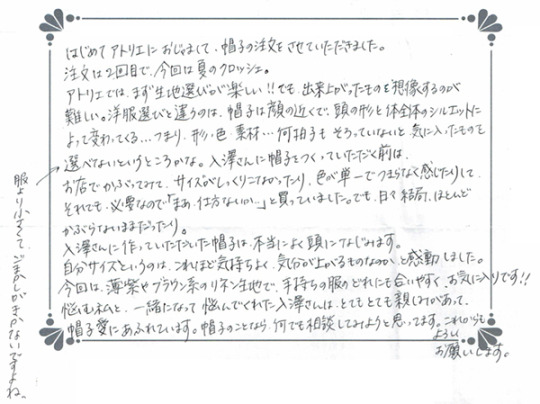 はじめてアトリエにおじゃまして、帽子の注文をさせていただきました。
注文は2回目で、今回は夏のクロッシェ。
アトリエでは、まず生地選びが楽しい!!でも、出来上がったものを想像するのが
難しい。洋服選びと違うのは、帽子は顔の近くで、頭の形と体全体のシルエットに
よって変わってくる…つまり、形・色・素材…何拍子もそろっていないと、気に入ったものを
選べないというところかな。入澤さんに帽子をつくっていただく前は、
お店でかぶってみて、サイズがしっくりこなかったり、色が単一でつまらなく感じたりして、
それでも、必要なので「まあ、仕方ないか…」と買っていました。でも、結局、ほとんど
かぶらないままだったり。
入澤さんに作っていただいた帽子は、本当によく頭になじみます。
自分サイズというのは、これほど気持ちよく、気分が上がるものなのかと感動しました。
今回は、薄紫やブラウン系のリネン生地で、手持ちの服のどれにも合いやすく、お気に入りです!!
悩む私と、一緒になって悩んでくれた入澤さんは、とてもとても親しみがあって、
帽子愛にあふれています。帽子のことなら、何でも相談してみようと思ってます。これからも
よろしく
お願いします。
服より小さくて、ごまかしがきかないですよね。